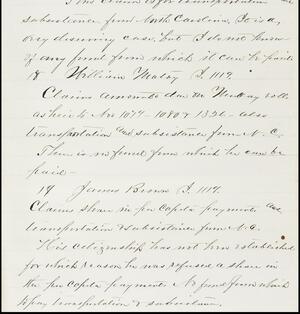 This claim is for transportation and
subsistence from North Carolina. It is a
very deserving case, but I do not know
of any fund from which it can be paid
18 William Maloy I. 1119.
Claims amounts due on Mullay rolls
as heir to Nos 1079 - 1080 & 1326 - also
transportation and subsistence from N.C.
There is no fund from which he can be
paid -
19 James Brown I. 1119.
Claims share in per capita payments and
transportation & subsistence from N.C.
His citizenship has not been established
for which reason he was refused a share in
the per capita payments. No funds from which
to pay transportation & subsistence.